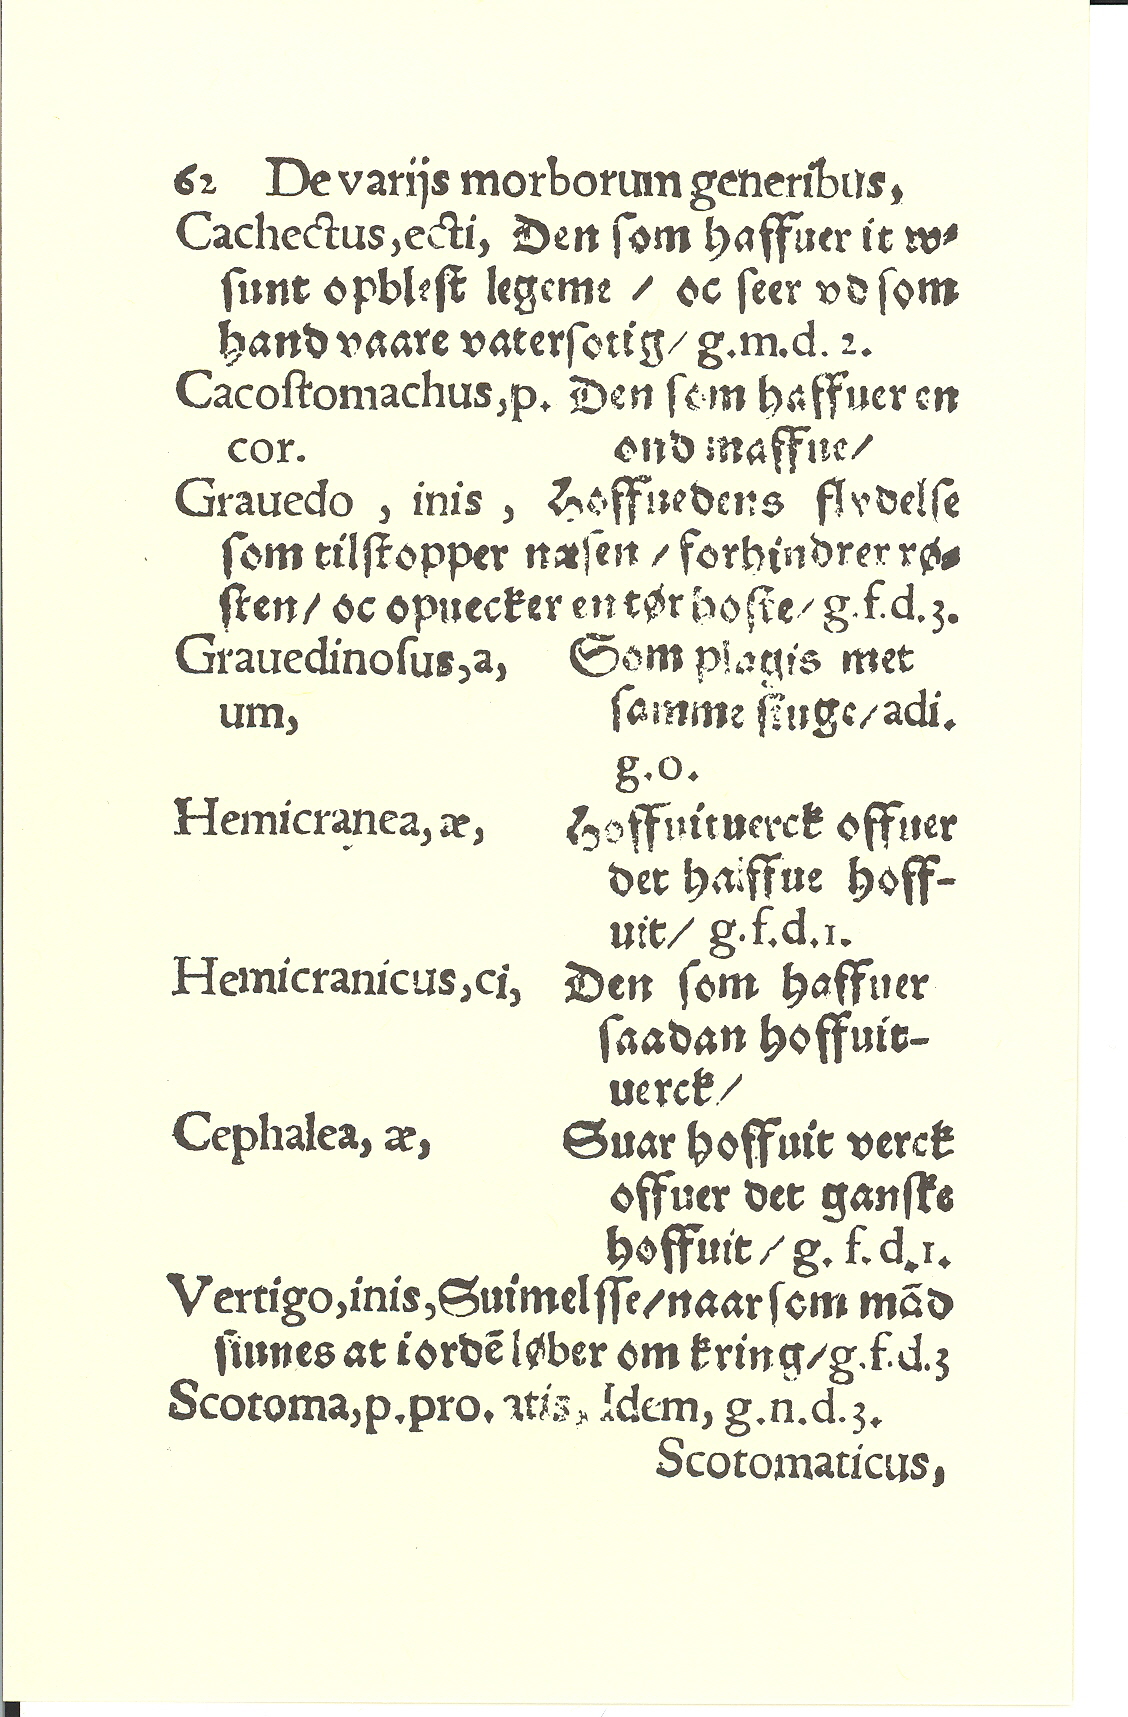 62 De varijs morborum generibus,
Cachectus, ecti, Den ſom haffuer it w⸗
ſunt opbleſt legeme / oc ſeer vd ſom
hand vaare vaterſotig / g.m.d. 2.
Cacoſtomachus, p. Den ſom haffuer en
cor. ond maffue /
Grauedo , inis , Hoffuedens flydelſe
ſom tilſtopper næſen / forhindrer rø⸗
ſten / oc opuecker en tør hoſte / g.f.d.3.
Grauedinoſus, a, Som plagis met
um, ſamme ſiuge / adi.
g.o.
Hemicranea, æ, Hoffuituerck offuer
det halffue hoff-
uit / g.f.d.1.
Hemicranicus, ci, Den ſom haffuer
ſaadan hoffuit-
uerck /
Cephalea, æ, Suar hoffuit verck
offuer det ganſke
hoffuit / g. f.d.1.
Vertigo, inis, Suimelſſe / naar ſom mād
ſiunes at iordē løber om kring / g.f.d.3
Scotoma, p. pro. atis, Idem, g.n.d.3.
Scotomaticus,